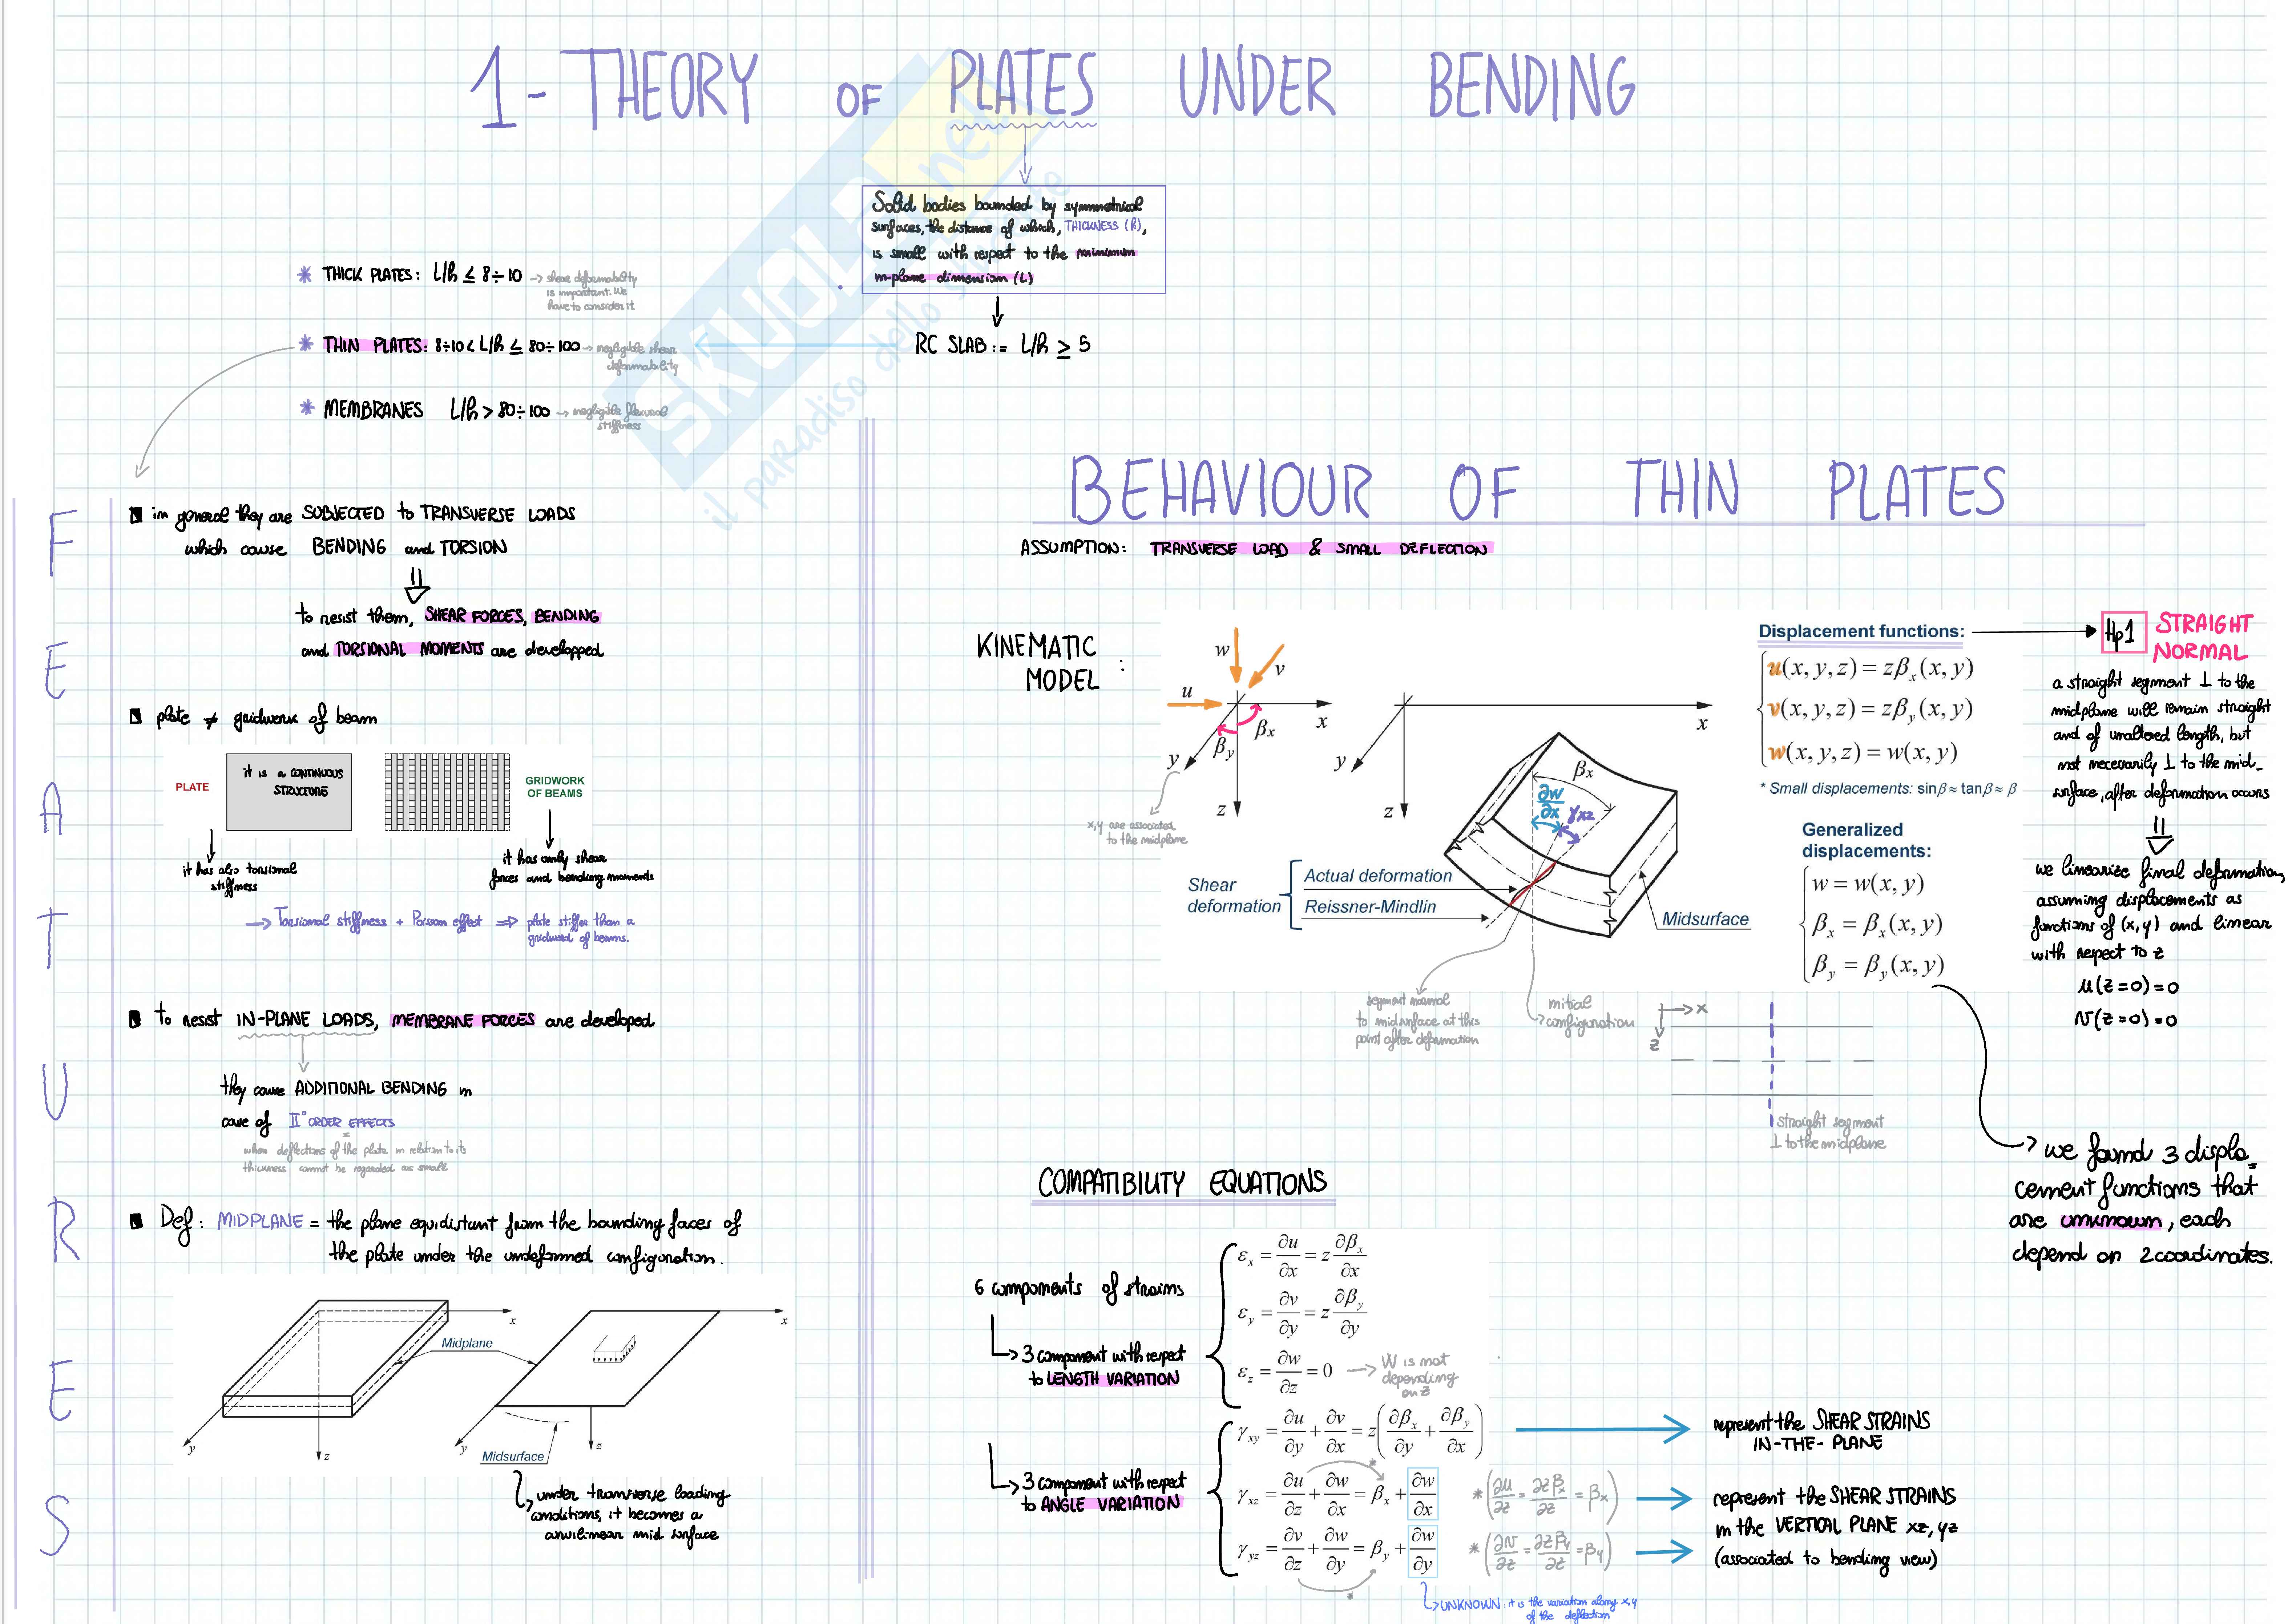 1-THEORY OF PLATES UNDER BENDING
Solid bodies bounded by symmetrical
surfaces, the distance of which, THICKNESS (h),
is small with respect to the minimum
in-plane dimension (L)
RC SLAB := L/h ≥ 5
* THICK PLATES: L/h ≤ 8÷10 → shear deformability
is important. We
have to consider it
* THIN PLATES: 8÷10 < L/h ≤ 80÷100 → negligible shear
deformability
* MEMBRANES L/h > 80÷100 → negligible flexural
stiffness
SKUOLA.net
il paradiso dello studente
FEATURES
in general they are SUBJECTED to TRANSVERSE LOADS
which cause BENDING and TORSION
to resist them, SHEAR FORCES, BENDING
and TORSIONAL MOMENTS are developped
plate ≠ gridwork of beam
PLATE
it is a CONTINUOUS
STRUCTURE
GRIDWORK
OF BEAMS
it has also torsional
stiffness
it has only shear
forces and bending moments
→ Torsional stiffness + Poisson effect ⇒ plate stiffer than a
gridword of beams.
to resist IN-PLANE LOADS, MEMBRANE FORCES are developed
they cause ADDITIONAL BENDING in
case of II° ORDER EFFECTS
=
when deflections of the plate in relation to its
thickness cannot be regarded as small
Def: MIDPLANE = the plane equidistant from the bounding faces of
the plate under the undeformed configuration.
x
x
Midplane
y
z
y
z
Midsurface
under transverse loading
conditions, it becomes a
curvilinear mid surface
BEHAVIOUR OF THIN PLATES
ASSUMPTION: TRANSVERSE LOAD & SMALL DEFLECTION
KINEMATIC
MODEL :
w
v
u
x
βx
βy
y
z
x,y are associated
to the midplane
x
y
z
βx
∂w/∂x
γxz
Shear
deformation
Actual deformation
Reissner-Mindlin
Midsurface
segment normal
to midsurface at this
point after deformation
initial
configuration
Displacement functions:
u(x, y, z) = zβx(x, y)
v(x, y, z) = zβy(x, y)
w(x, y, z) = w(x, y)
* Small displacements: sinβ ≈ tanβ ≈ β
Generalized
displacements:
w = w(x, y)
βx = βx(x, y)
βy = βy(x, y)
x
z
straight segment
⊥ to the midplane
Hp1 STRAIGHT
NORMAL
a straight segment ⊥ to the
midplane will remain straight
and of unaltered length, but
not necessarily ⊥ to the mid-
surface, after deformation occurs
we linearize final deformation,
assuming displacements as
functions of (x,y) and linear
with respect to z
u(z=0)=0
v(z=0)=0
we found 3 displa=
cement functions that
are unknown, each
depend on 2 coordinates.
COMPATIBILITY EQUATIONS
6 components of strains
3 component with respect
to LENGTH VARIATION
εx = ∂u/∂x = z ∂βx/∂x
εy = ∂v/∂y = z ∂βy/∂y
εz = ∂w/∂z = 0 → W is not
depending
on z
3 component with respect
to ANGLE VARIATION
γxy = ∂u/∂y + ∂v/∂x = z(∂βx/∂y + ∂βy/∂x)
represent the SHEAR STRAINS
IN-THE-PLANE
*
γxz = ∂u/∂z + ∂w/∂x = βx + ∂w/∂x
* (∂u/∂z = ∂zβx/∂z = βx)
γyz = ∂v/∂z + ∂w/∂y = βy + ∂w/∂y
* (∂v/∂z = ∂zβy/∂z = βy)
*
represent the SHEAR STRAINS
in the VERTICAL PLANE xz, yz
(associated to bending view)
UNKNOWN: it is the variation along x,y
of the deflection